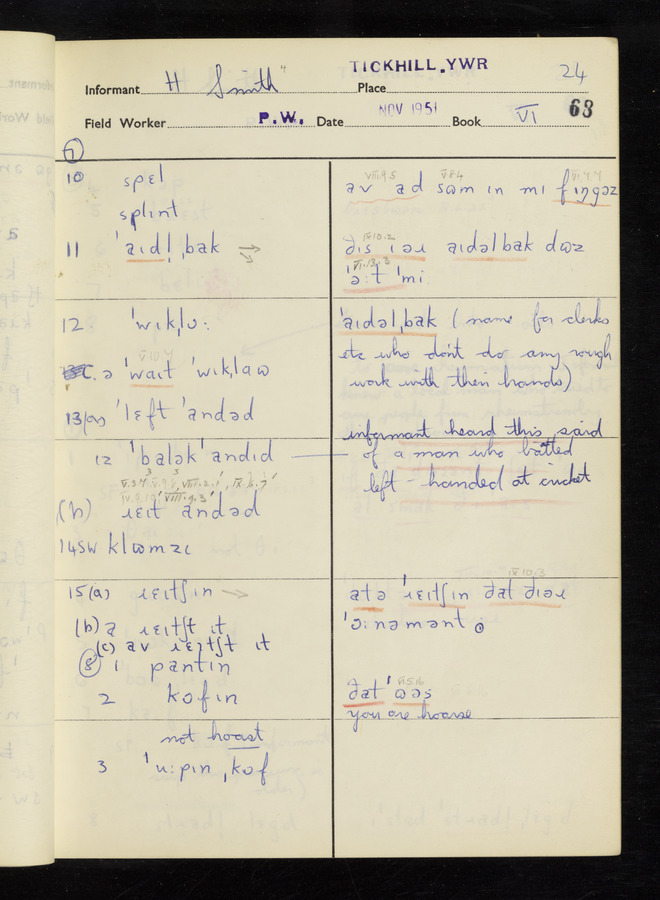 TICKHILL, YWR
24
Informant H Smith Place
Field Worker P.W. Date NOV 1951 Book VI 63
7
10 spɛl
splint
av ad sʊm ɪn mɪ fɪŋgəz
11 ˈaɪdl̩ˌbak →
ðɪs ɪəɹ aɪdəlbak dʊz
ˈəːt ˈmɪ
12. ˈwɪkˌlʊː
ˈaɪdəlˌbak (name for clerks
etc who don't do any rough
work with their hands)
ə ˈwaɪt ˈwɪkˌlaʊ
13/(a) ˈlɛft ˈandəd
12 ˈbalək ˈandɪd
informant heard this said
of a man who batted
left-handed at cricket
(b) ɹɛɪt andəd
14 SW klʊmzɪ
15 (a) ɹɛɪtʃɪn →
atə ˈɹɛɪtʃɪn ðat ðɪəɹ
ˈɔːnəmənt
(b) a ɹɛɪtʃt ɪt
(c) av ɹɛɪtʃt ɪt
8 1 pantɪn
2 ˈkɒfɪn
ðat ˈʊəs
you are hoarse
not hoast
3 ˈuːpɪn ˌkɒf